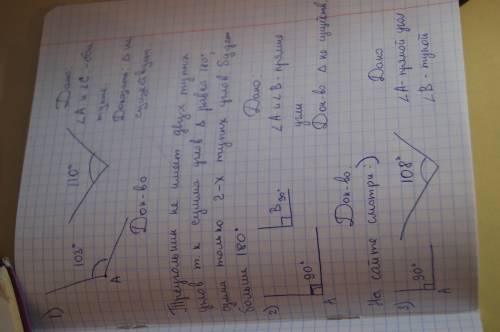 1) 103° 110° Дано
A ∠A и ∠C - оба
тупые
Доказать Δ не
существует
Док-во
Треугольник не имеет двух тупых
углов т.к сумма углов Δ равна 180°,
сумма только 2-х тупых углов будет
больше 180°
2) 90° B 90° Дано
A ∠A и ∠B - прямые
углы
Док-во Δ не существ
Док-во.
На сайте смотри :)
3) 90° 108° Дано
A ∠A - прямой угол
∠B - тупой